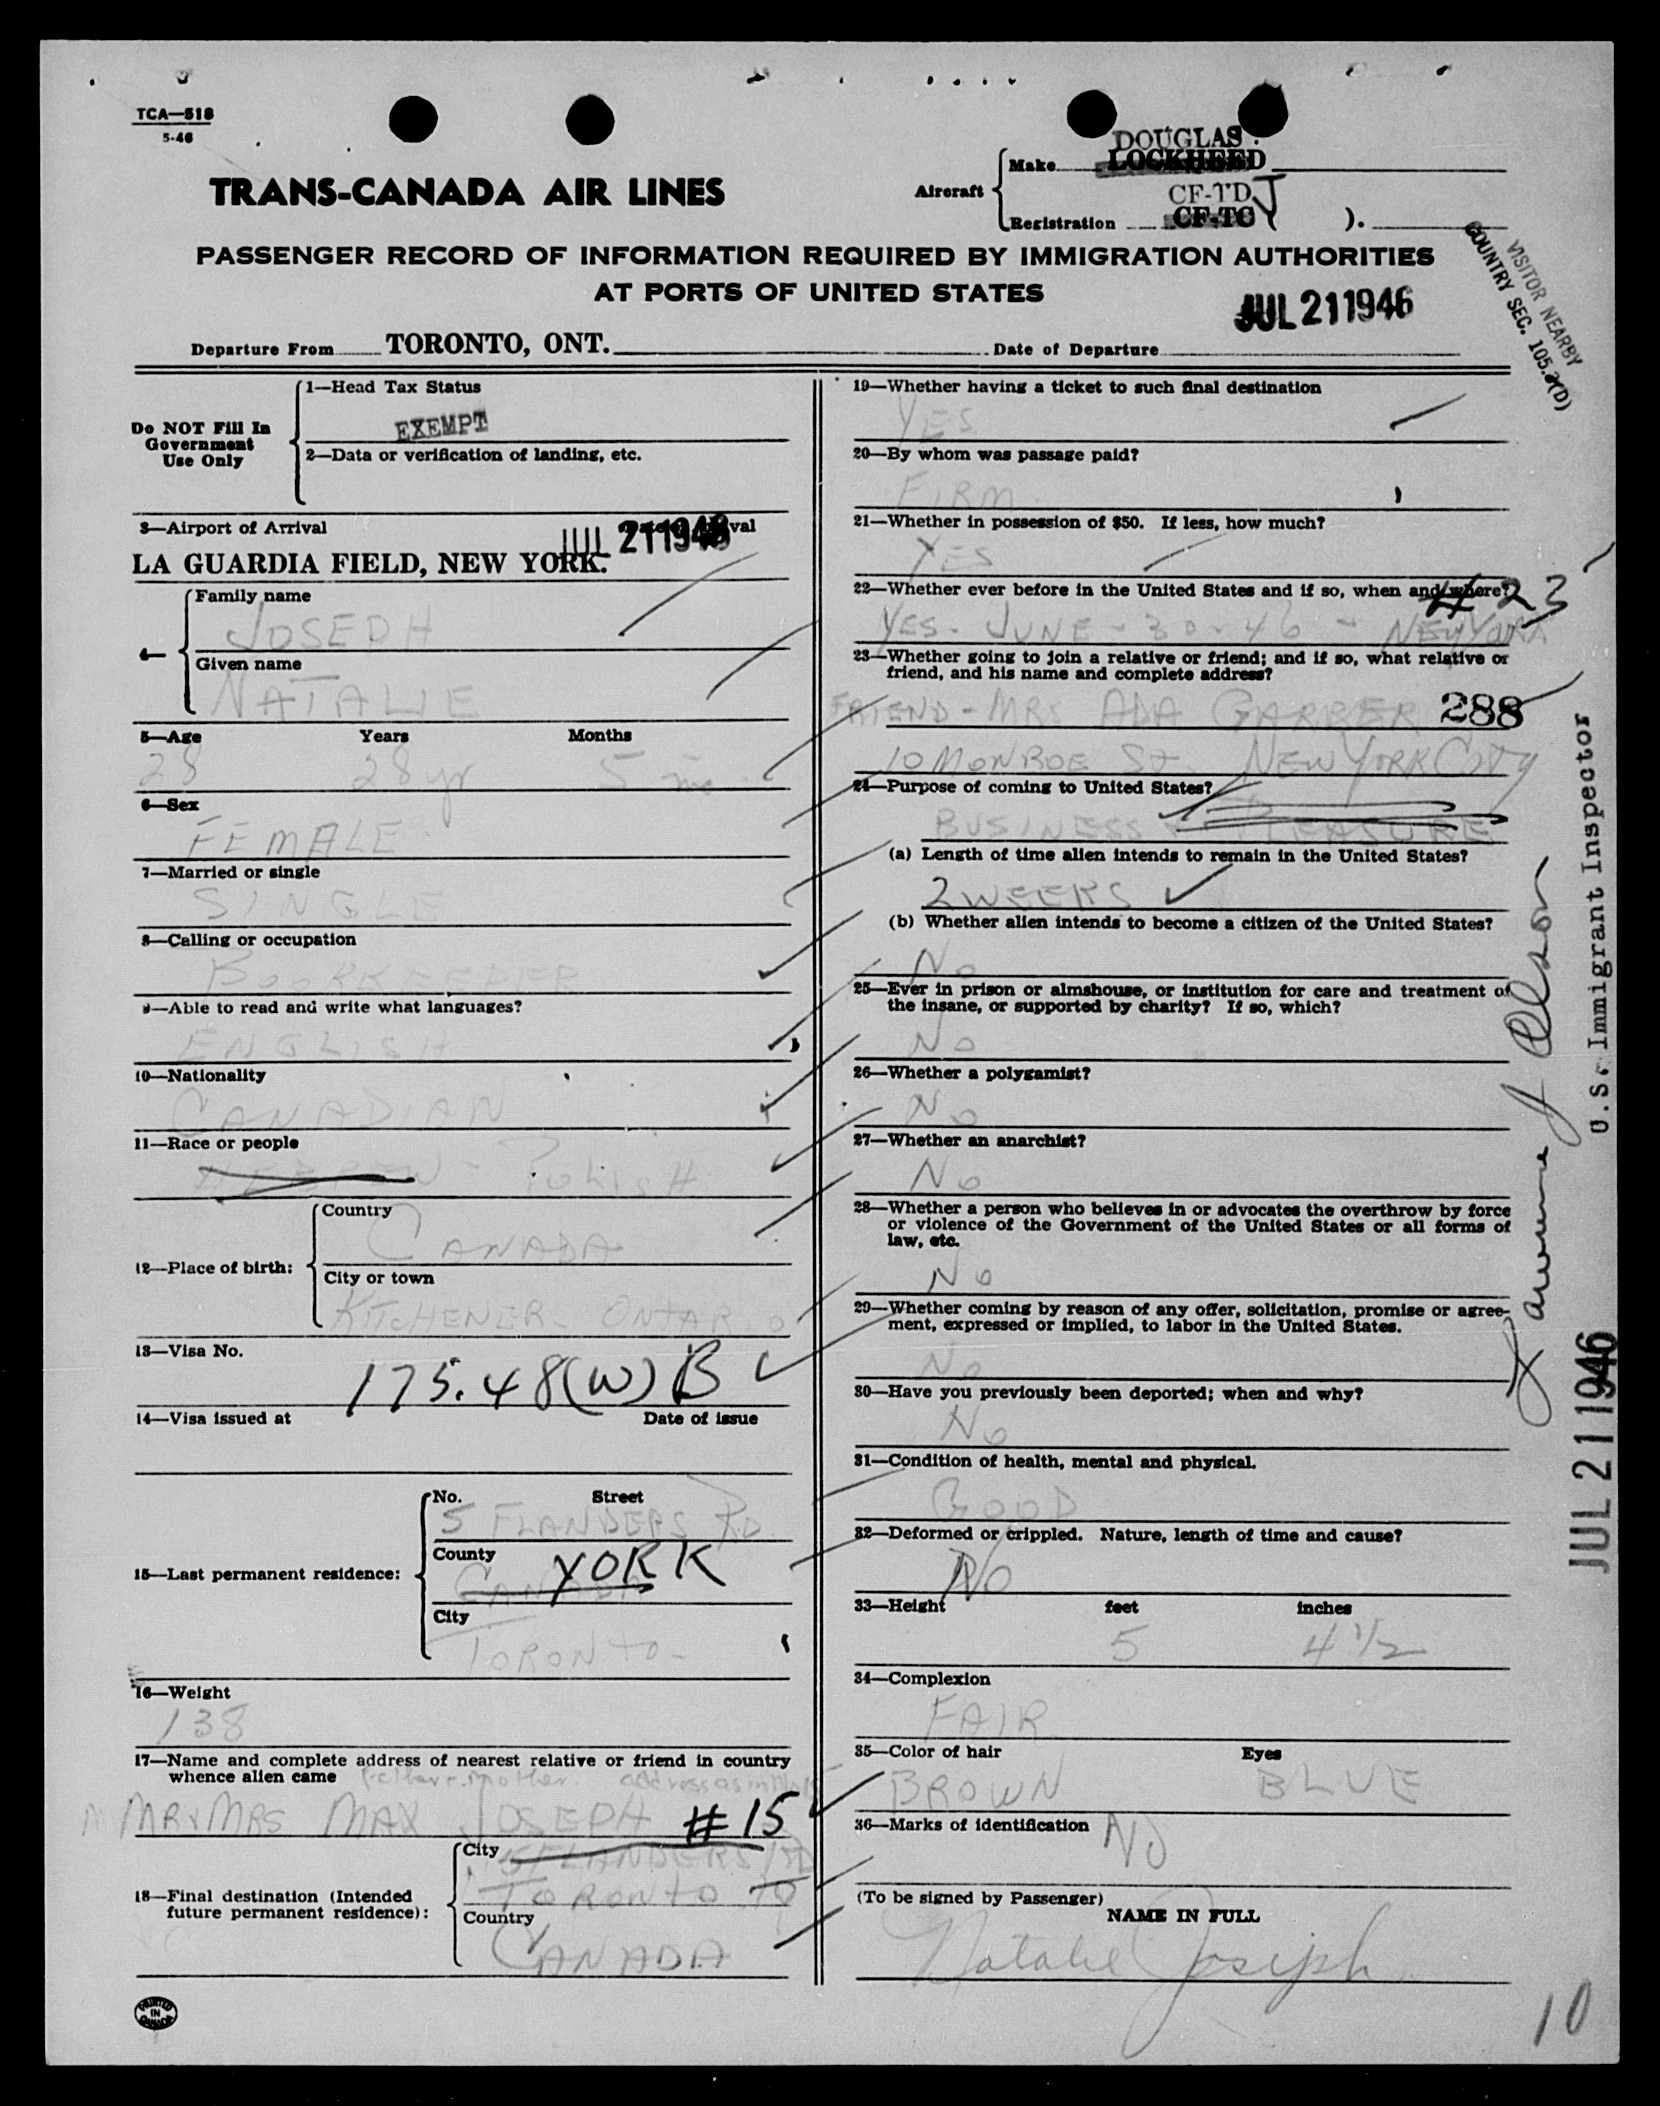 TCA—518
5-46
TRANS-CANADA AIR LINES
Aircraft
Make DOUGLAS
LOCKHEED
Registration CF-TD J
CF-TC ( ).
PASSENGER RECORD OF INFORMATION REQUIRED BY IMMIGRATION AUTHORITIES
AT PORTS OF UNITED STATES
VISITOR NEARBY
COUNTRY SEC. 105.3(D)
JUL 21 1946
Departure From TORONTO, ONT.
Date of Departure
Do NOT Fill In
Government
Use Only
1—Head Tax Status
EXEMPT
2—Data or verification of landing, etc.
3—Airport of Arrival
JUL 21 1946
LA GUARDIA FIELD, NEW YORK.
4—
Family name
JOSEPH
Given name
NATALIE
5—Age Years Months
28 28 yr 5 mo
6—Sex
FEMALE
7—Married or single
SINGLE
8—Calling or occupation
BOOKKEEPER
9—Able to read and write what languages?
ENGLISH
10—Nationality
CANADIAN
11—Race or people
HEBREW - POLISH
12—Place of birth:
Country
CANADA
City or town
KITCHENER - ONTARIO
13—Visa No.
175.48(W) B
14—Visa issued at Date of issue
15—Last permanent residence:
No. Street
5 FLANDERS RD.
County
CANADA YORK
City
TORONTO -
16—Weight
138
17—Name and complete address of nearest relative or friend in country
whence alien came father-mother. address as in
MR & MRS MAX JOSEPH #15
18—Final destination (Intended
future permanent residence):
City
5 FLANDERS RD
TORONTO
Country
CANADA
PRINTED
IN
CANADA
19—Whether having a ticket to such final destination
YES
20—By whom was passage paid?
FIRM.
21—Whether in possession of $50. If less, how much?
YES
22—Whether ever before in the United States and if so, when and where?
#23
YES - JUNE - 30 - 46 - NEW YORK
23—Whether going to join a relative or friend; and if so, what relative or
friend, and his name and complete address?
FRIEND - MRS ADA GARBER 288
10 MONROE ST. NEW YORK CITY
24—Purpose of coming to United States?
BUSINESS & PLEASURE
(a) Length of time alien intends to remain in the United States?
2 WEEKS
(b) Whether alien intends to become a citizen of the United States?
NO
25—Ever in prison or almshouse, or institution for care and treatment of
the insane, or supported by charity? If so, which?
NO
26—Whether a polygamist?
NO
27—Whether an anarchist?
NO
28—Whether a person who believes in or advocates the overthrow by force
or violence of the Government of the United States or all forms of
law, etc.
NO
29—Whether coming by reason of any offer, solicitation, promise or agree-
ment, expressed or implied, to labor in the United States.
NO
30—Have you previously been deported; when and why?
NO
31—Condition of health, mental and physical.
GOOD
32—Deformed or crippled. Nature, length of time and cause?
NO
33—Height feet inches
5 4 1/2
34—Complexion
FAIR
35—Color of hair Eyes
BROWN BLUE
36—Marks of identification NO
(To be signed by Passenger)
NAME IN FULL
Natalie Joseph
Lawrence J Olson
U.S. Immigrant Inspector
JUL 21 1946
10